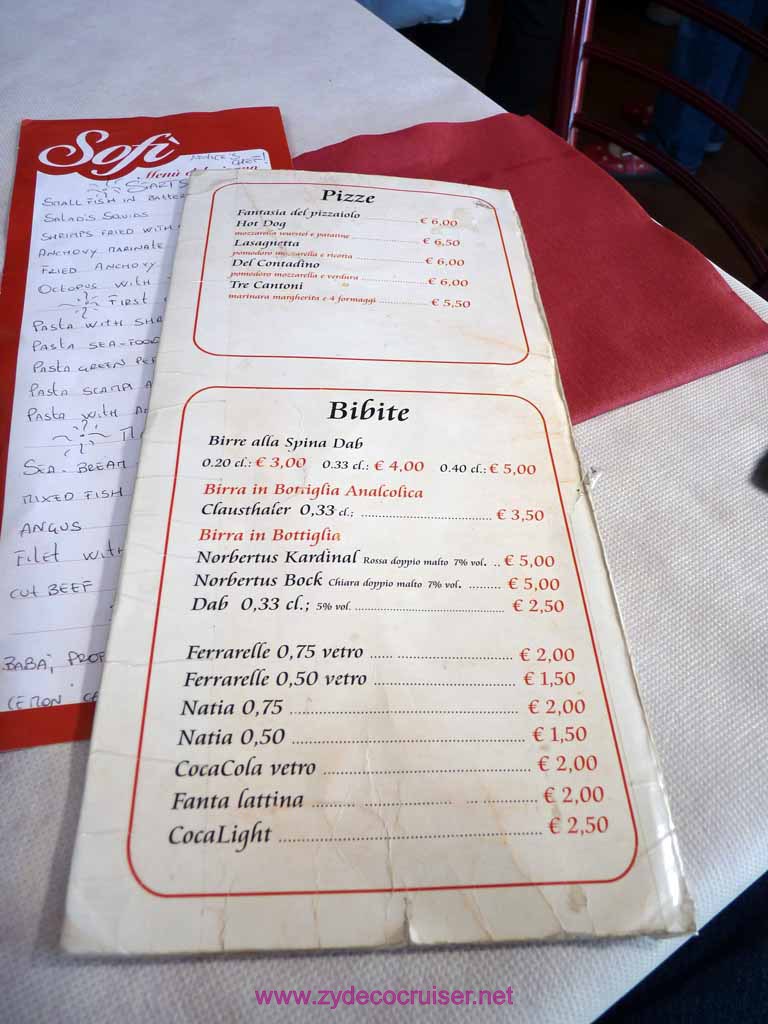 Sofì
Menù
SMALL FISH IN BATTER
SALAD'S SQUIDS
SHRIMPS FRIED WITH
ANCHOVY MARINATE
FRIED ANCHOVY
OCTOPUS WITH
FIRST
PASTA WITH
PASTA SEA-FOOD
PASTA GREEN
PASTA SCAMPI
PASTA WITH
SEA-BREAM
MIXED FISH
ANGUS
FILET WITH
CUT BEEF
BABA',
Pizze
Fantasia del pizzaiolo € 6,00
Hot Dog
mozzarella wurstel e patatine € 6,50
Lasagnetta
pomodoro mozzarella e ricotta € 6,00
Del Contadino
pomodoro mozzarella e verdura € 6,00
Tre Cantoni
marinara margherita e 4 formaggi € 5,50
Bibite
Birre alla Spina Dab
0.20 cl.: € 3,00 0.33 cl.: € 4,00 0.40 cl.: € 5,00
Birra in Bottiglia Analcolica
Clausthaler 0,33 cl.; € 3,50
Birra in Bottiglia
Norbertus Kardinal Rossa doppio malto 7% vol. .. € 5,00
Norbertus Bock Chiara doppio malto 7% vol. ......... € 5,00
Dab 0,33 cl.; 5% vol. € 2,50
Ferrarelle 0,75 vetro € 2,00
Ferrarelle 0,50 vetro € 1,50
Natia 0,75 € 2,00
Natia 0,50 € 1,50
CocaCola vetro € 2,00
Fanta lattina € 2,00
CocaLight € 2,50
www.zydecocruiser.net